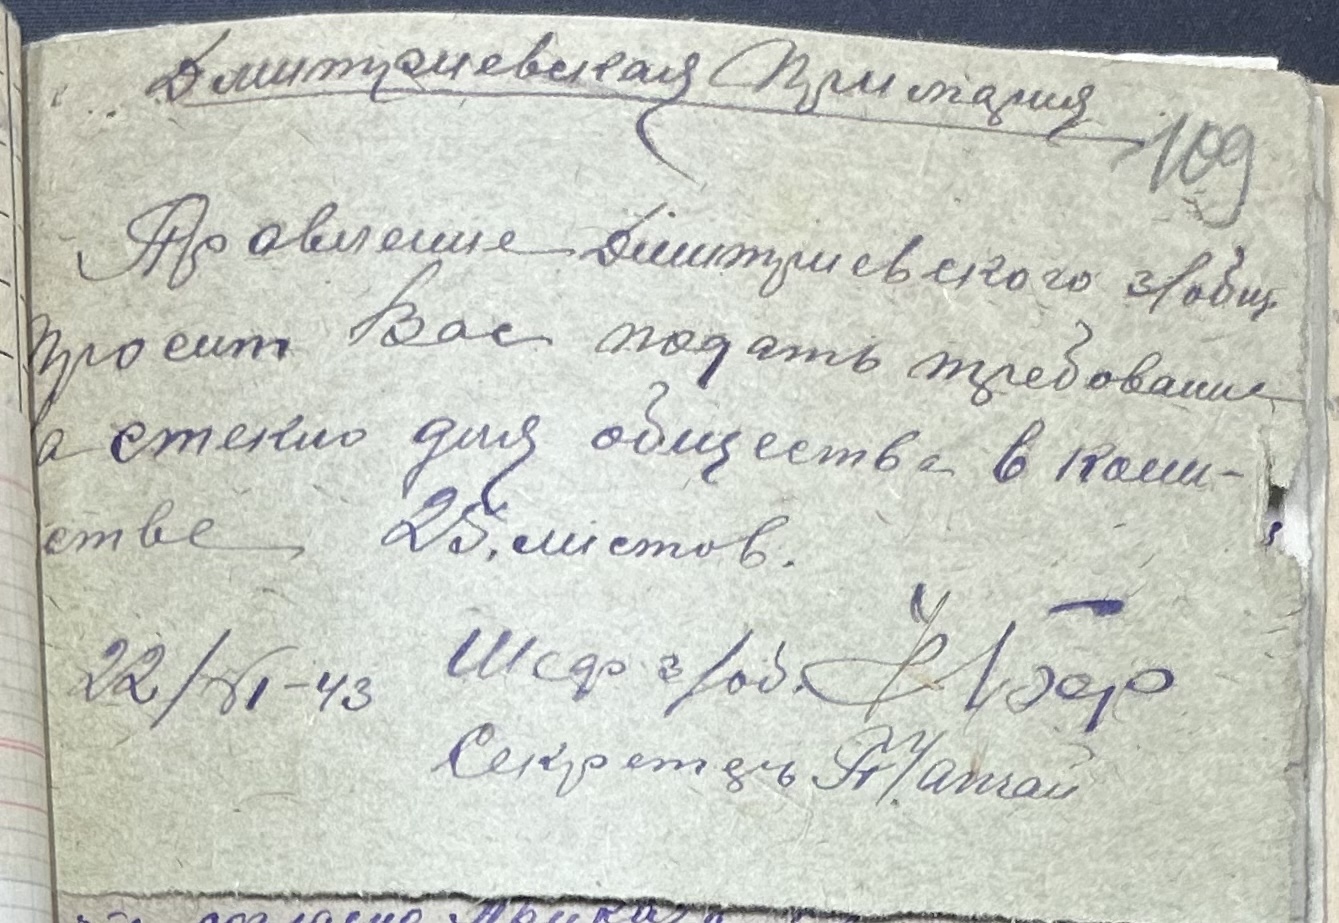 Дмитриевская Примария
109
Правление Дмитриевского з/общ.
просит Вас подать требование
а стекло для общества в коли-
стве 25. листов.
22/XI-43 Шеф з/об.
Секретарь
согласно Приказа